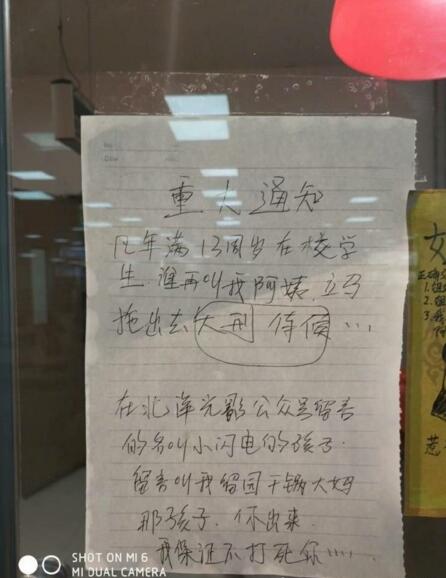 重大通知
凡年满13周岁在校学
生.谁再叫我阿姨.立马
拖出去大刑 侍候…
在北洋光影公众号留言
的名叫小闪电的孩子.
留言叫我留园干锅大妈
那孩子.你出来.
我保证不打死你……
女
1.
2.
3.
惹
SHOT ON MI 6
MI DUAL CAMERA